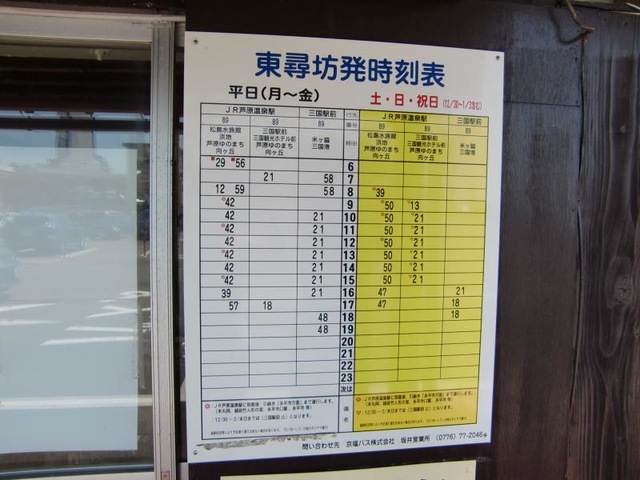 東尋坊発時刻表
平日(月～金) 土・日・祝日(12/30～1/3含む)
JR芦原温泉駅 三国駅前 行先 JR芦原温泉駅 三国駅前
89 89 89 89 89 89
松島水族館 三国駅前 米ヶ脇 経由 松島水族館 三国駅前 米ヶ脇
浜地 三国観光ホテル前 三国港 浜地 三国観光ホテル前 三国港
芦原ゆのまち 芦原ゆのまち 芦原ゆのまち 芦原ゆのまち
向ヶ丘 向ヶ丘 向ヶ丘 向ヶ丘
29 56 6
21 58 7
12 59 58 8 39
42 9 50 13
42 21 10 50 21
42 21 11 50 21
42 21 12 50 21
42 21 13 50 21
42 21 14 50 21
42 21 15 50 21
39 21 16 47 21
57 18 17 47 18
48 18 18
48 19
20
21
22
23
次は
備考
問い合わせ先 京福バス株式会社 坂井営業所 (0776) 77-2046